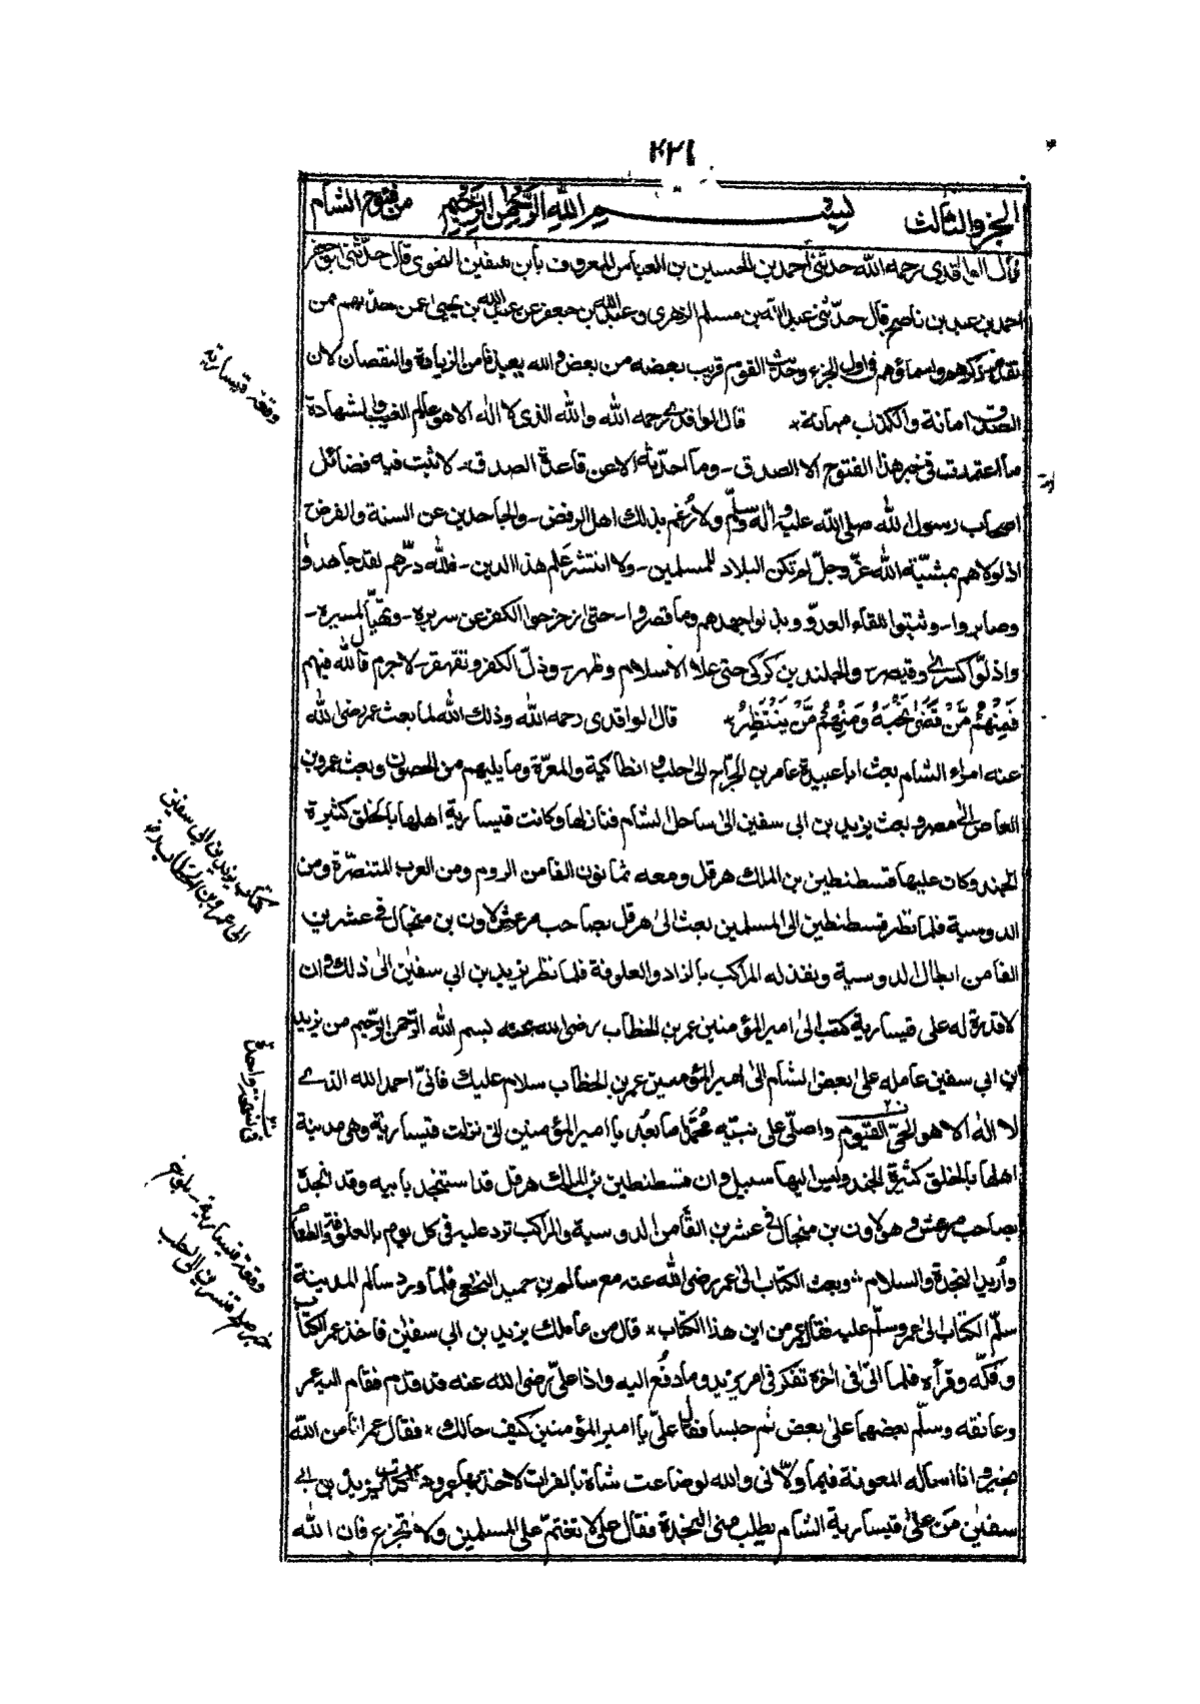 ٢٢١
الجزء والثالث بسم الله الرحمن الرحيم من فتوح الشام
قال الواقدي رحمه الله حدثني احمد بن الحسين بن العباس المعروف بابن سفين النحوي قال حدثني ابو جعفر
احمد بن عبد بن ناصح قال حدّثني عبد الله بن مسلم الزهري وعبد الله بن جعفر عن عبد الله بن يحيى عمن حدثهم ممن
تقدم ذكرهم واسماؤهم في اول الجزء وحديث القوم قريب بعضه من بعض والله يعيذنا من الزيادة والنقصان لان
الصدق امانة والكذب مهانة * قال الواقدي رحمه الله والله الذي لا اله الا هو عالم الغيب والشهادة
ما اعتمدت في خبر هذا الفتوح الا الصدق - وما احدّثه الا عن قاعدة الصدق - لاثبت فيه فضائل
اصحاب رسول الله صلى الله عليه واله وسلّم ولارغم بذلك اهل الرفض - والجاحدين عن السنة والفرض
اذ لولاهم بمشيّة الله عزّ وجلّ لم تكن البلاد للمسلمين - ولا انتشر عَلم هذا الدين - فلله درّهم لقد جاهدوا
وصابروا - وثبتوا للقاء العدوّ وبذلوا جهدهم وما قصروا - حتى زحزحوا الكفر عن سريره - وتهيّأ لمسيره -
واذلّوا كسرى وقيصر - والجلند بن كركر حتى علا الاسلام وظهر - وذلّ الكفر وتقهقر - لاجرم قال الله فيهم
فَمِنْهُمْ مَّنْ قَضَىٰ نَحْبَهُ وَمِنْهُمْ مَّنْ يَنْتَظِرُ * قال الواقدي رحمه الله وذلك الله لما بعث عمر رضي الله
عنه امراء الشام بعث ابا عبيدة عامر بن الجرّاح الى حلب و انطاكية والمعرّة وما يليهم من الحصون وبعث عمرو بن
العاص الى مصر و بعث يزيد بن ابي سفين الى ساحل الشام فنازلها وكانت قيسارية اهلها بالخلق كثيرة
الجند وكان عليها قسطنطين بن الملك هرقل ومعه ثمانون الفا من الروم ومن العرب المتنصّرة ومن
الدوسية فلما نظر قسطنطين الى المسلمين بعث الى هرقل بصاحب مرعش لاون بن منجال في عشرين
الفا من ابطال الدوسية وبعث له المراكب بالزاد والعلوفة فلما نظر يزيد بن ابي سفين الى ذلك وان
لا قدرة له على قيسارية كتب الى امير المؤمنين عمر بن الخطاب رضي الله عنه بسم الله الرّحمن الرّحيم من يزيد
ابن ابي سفين عامله على بعض الشام الى امير المؤمنين عمر بن الخطاب سلام عليك فانّي احمد الله الذي
لا اله الا هو الحيّ القيّوم واصلّي على نبيّه محمّد اما بعد يا امير المؤمنين انّي نزلت قيسارية وهي مدينة
اهلها بالخلق كثيرة الجند وليس اليها سبيل وان قسطنطين بن الملك هرقل قد استنجد بابيه وقد انجده
بصاحب مرعش و هو لاون بن منجال في عشرين الفًا من الدوسية والمراكب ترد عليه في كل يوم بالعلوفة والطعام
واريد النجدة والسلام * وبعث الكتاب الى عمر رضي الله عنه مع سالم بن حميد النخعي فلما ورد سالم المدينة
سلّم الكتاب الى عمر وسلّم عليه فقال عمر من اين هذا الكتاب * قال من عاملك يزيد بن ابي سفين فاخذ عمر الكتاب
وفكّه وقرأه فلما اتى في اخره تفكر في امر يزيد وما دفع اليه واذا عليّ رضي الله عنه قد قدم فقام اليه عمر
وعانقه وسلّم بعضهما على بعض ثم جلسا فقال عليّ يا امير المؤمنين كيف حالك * فقال عمر انا من الله
بخير و انا اساله المعونة فيما ولّاني والله لو ضاعت شاة بالفرات لاخذ بها عمر و هذا كتاب يزيد بن ابي
سفين من على قيسارية الشام يطلب مني النجدة فقال علي لا تغتمّ على المسلمين ولا تجزع فان الله
وقعة قيسارية
كتاب يزيد بن ابي سفين
الى عمر بن الخطاب رض
في نسخة واحد
وقعة قيسارية